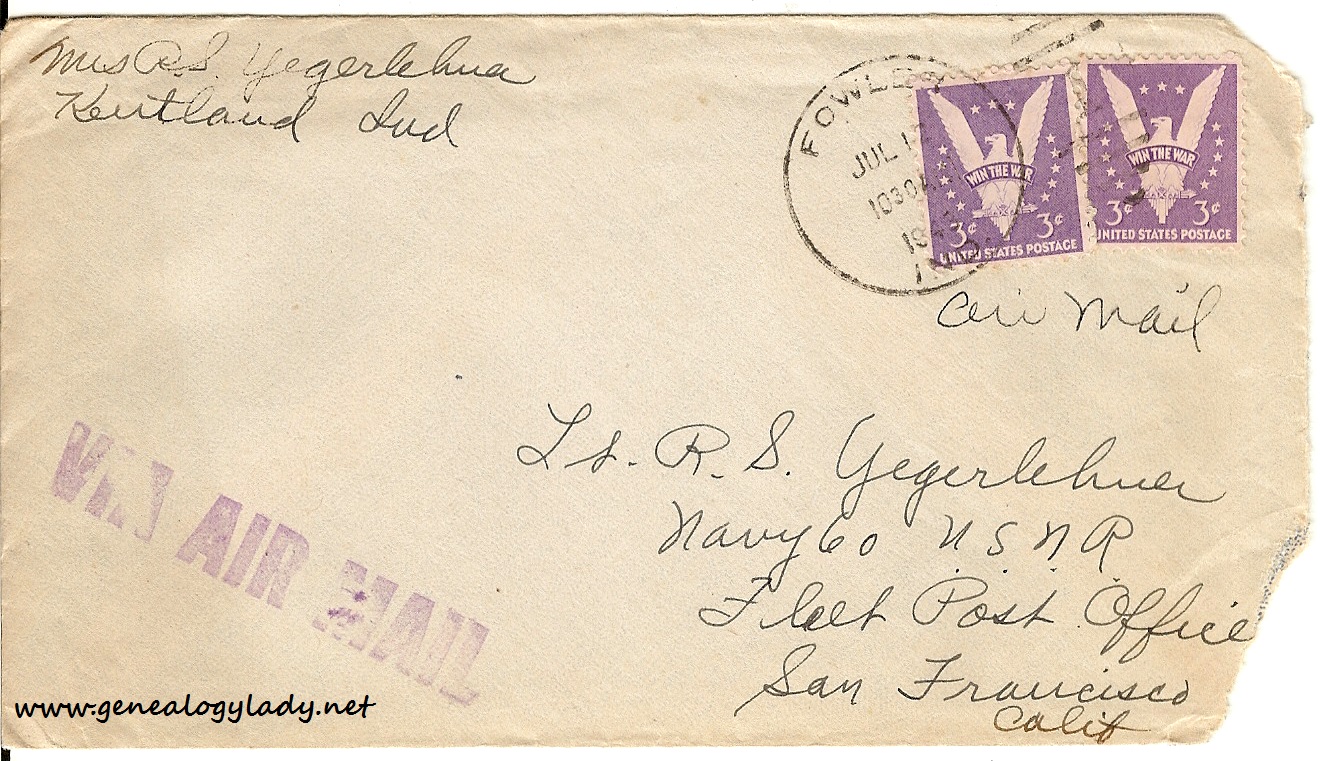 Mrs R.S. Yegerlehner
Kentland Ind
FOWLER
JUL
1030A
IND.
WIN THE WAR
3¢ 3¢
UNITED STATES POSTAGE
WIN THE WAR
3¢ 3¢
UNITED STATES POSTAGE
Air Mail
Lt. R. S. Yegerlehner
Navy 60 U.S.N.R.
Fleet Post Office
San Francisco
Calif
VIA AIR MAIL
www.genealogylady.net